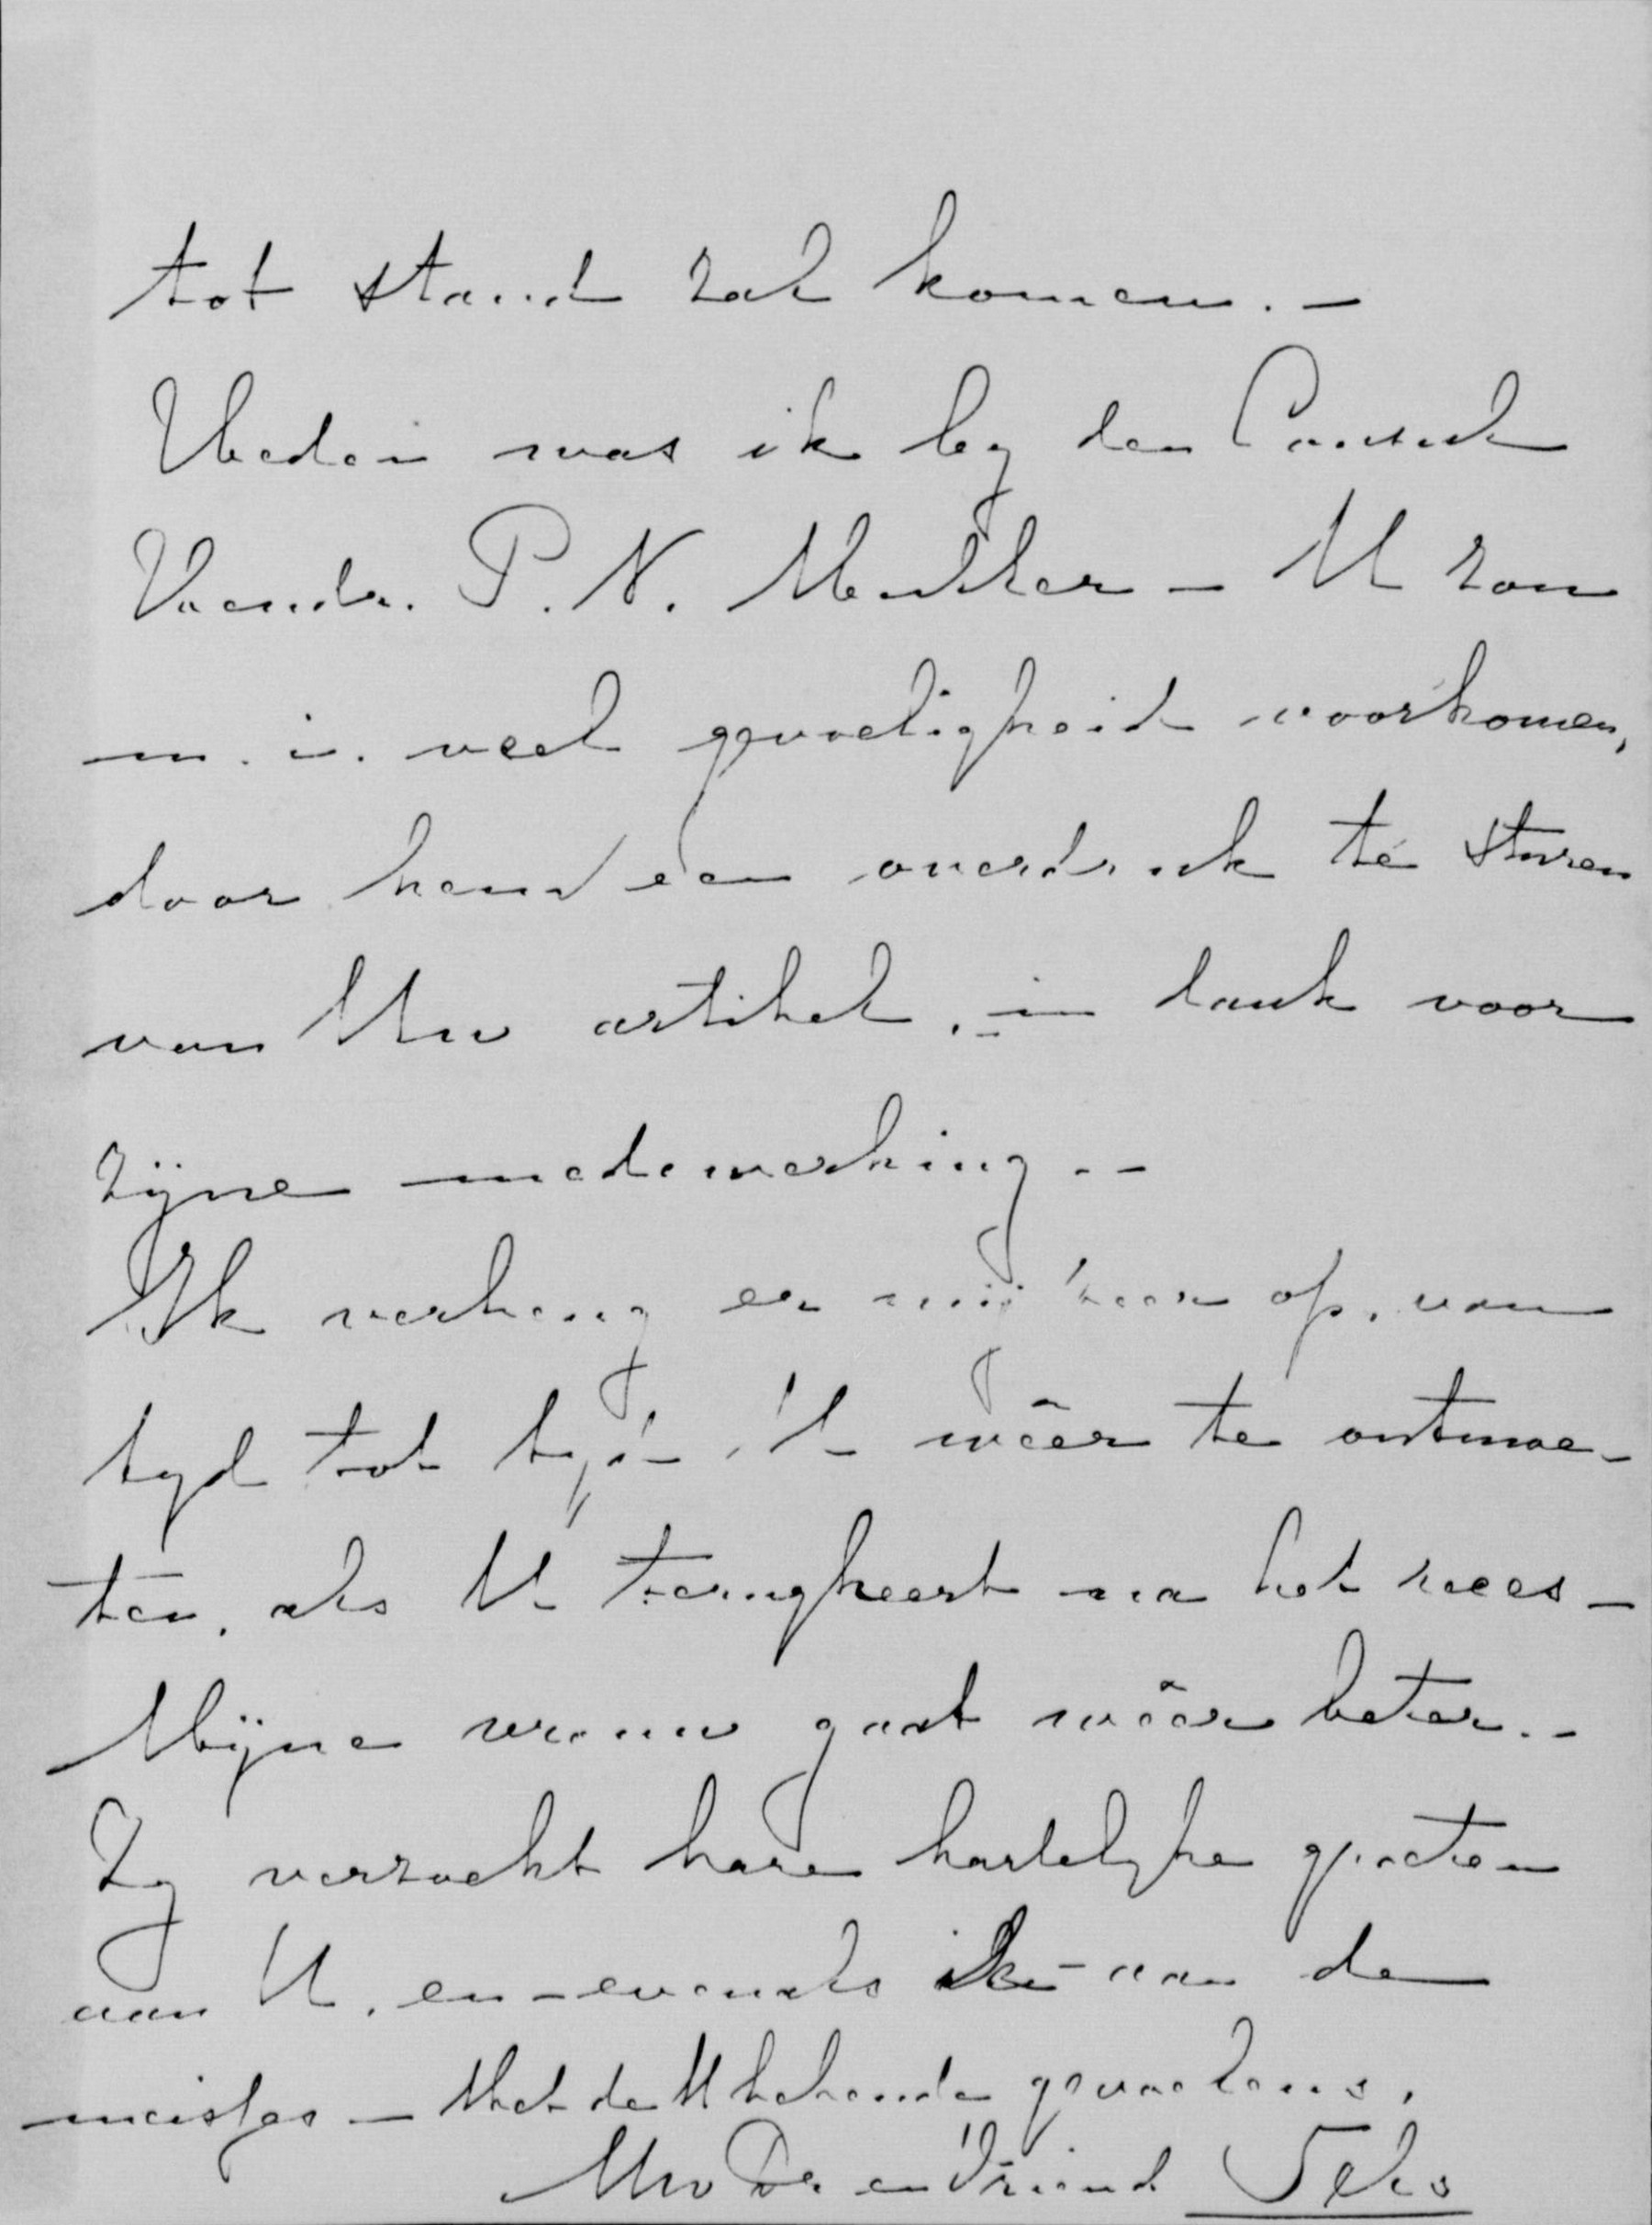 tot stand zal komen. —
Heden was ik by den Consul
P. N. Menkler — U zou
m. i. veel gevoeligheid voorkomen,
door hem een overdruk te sturen
van Uw artikel, in dank voor
zijne medewerking. —
Ik verheug er mij zeer op, van
tyd tot tijd U wêer te ontmoe-
ten, als U terugkeert na het reces —
Mijne vrouw gaat wêer beter. —
Zy verzoekt hare hartelyke groeten
aan U, en — evenals ik — aan de
meisjes — Met de U bekende gevoelens,
Uw Dr en Vriend